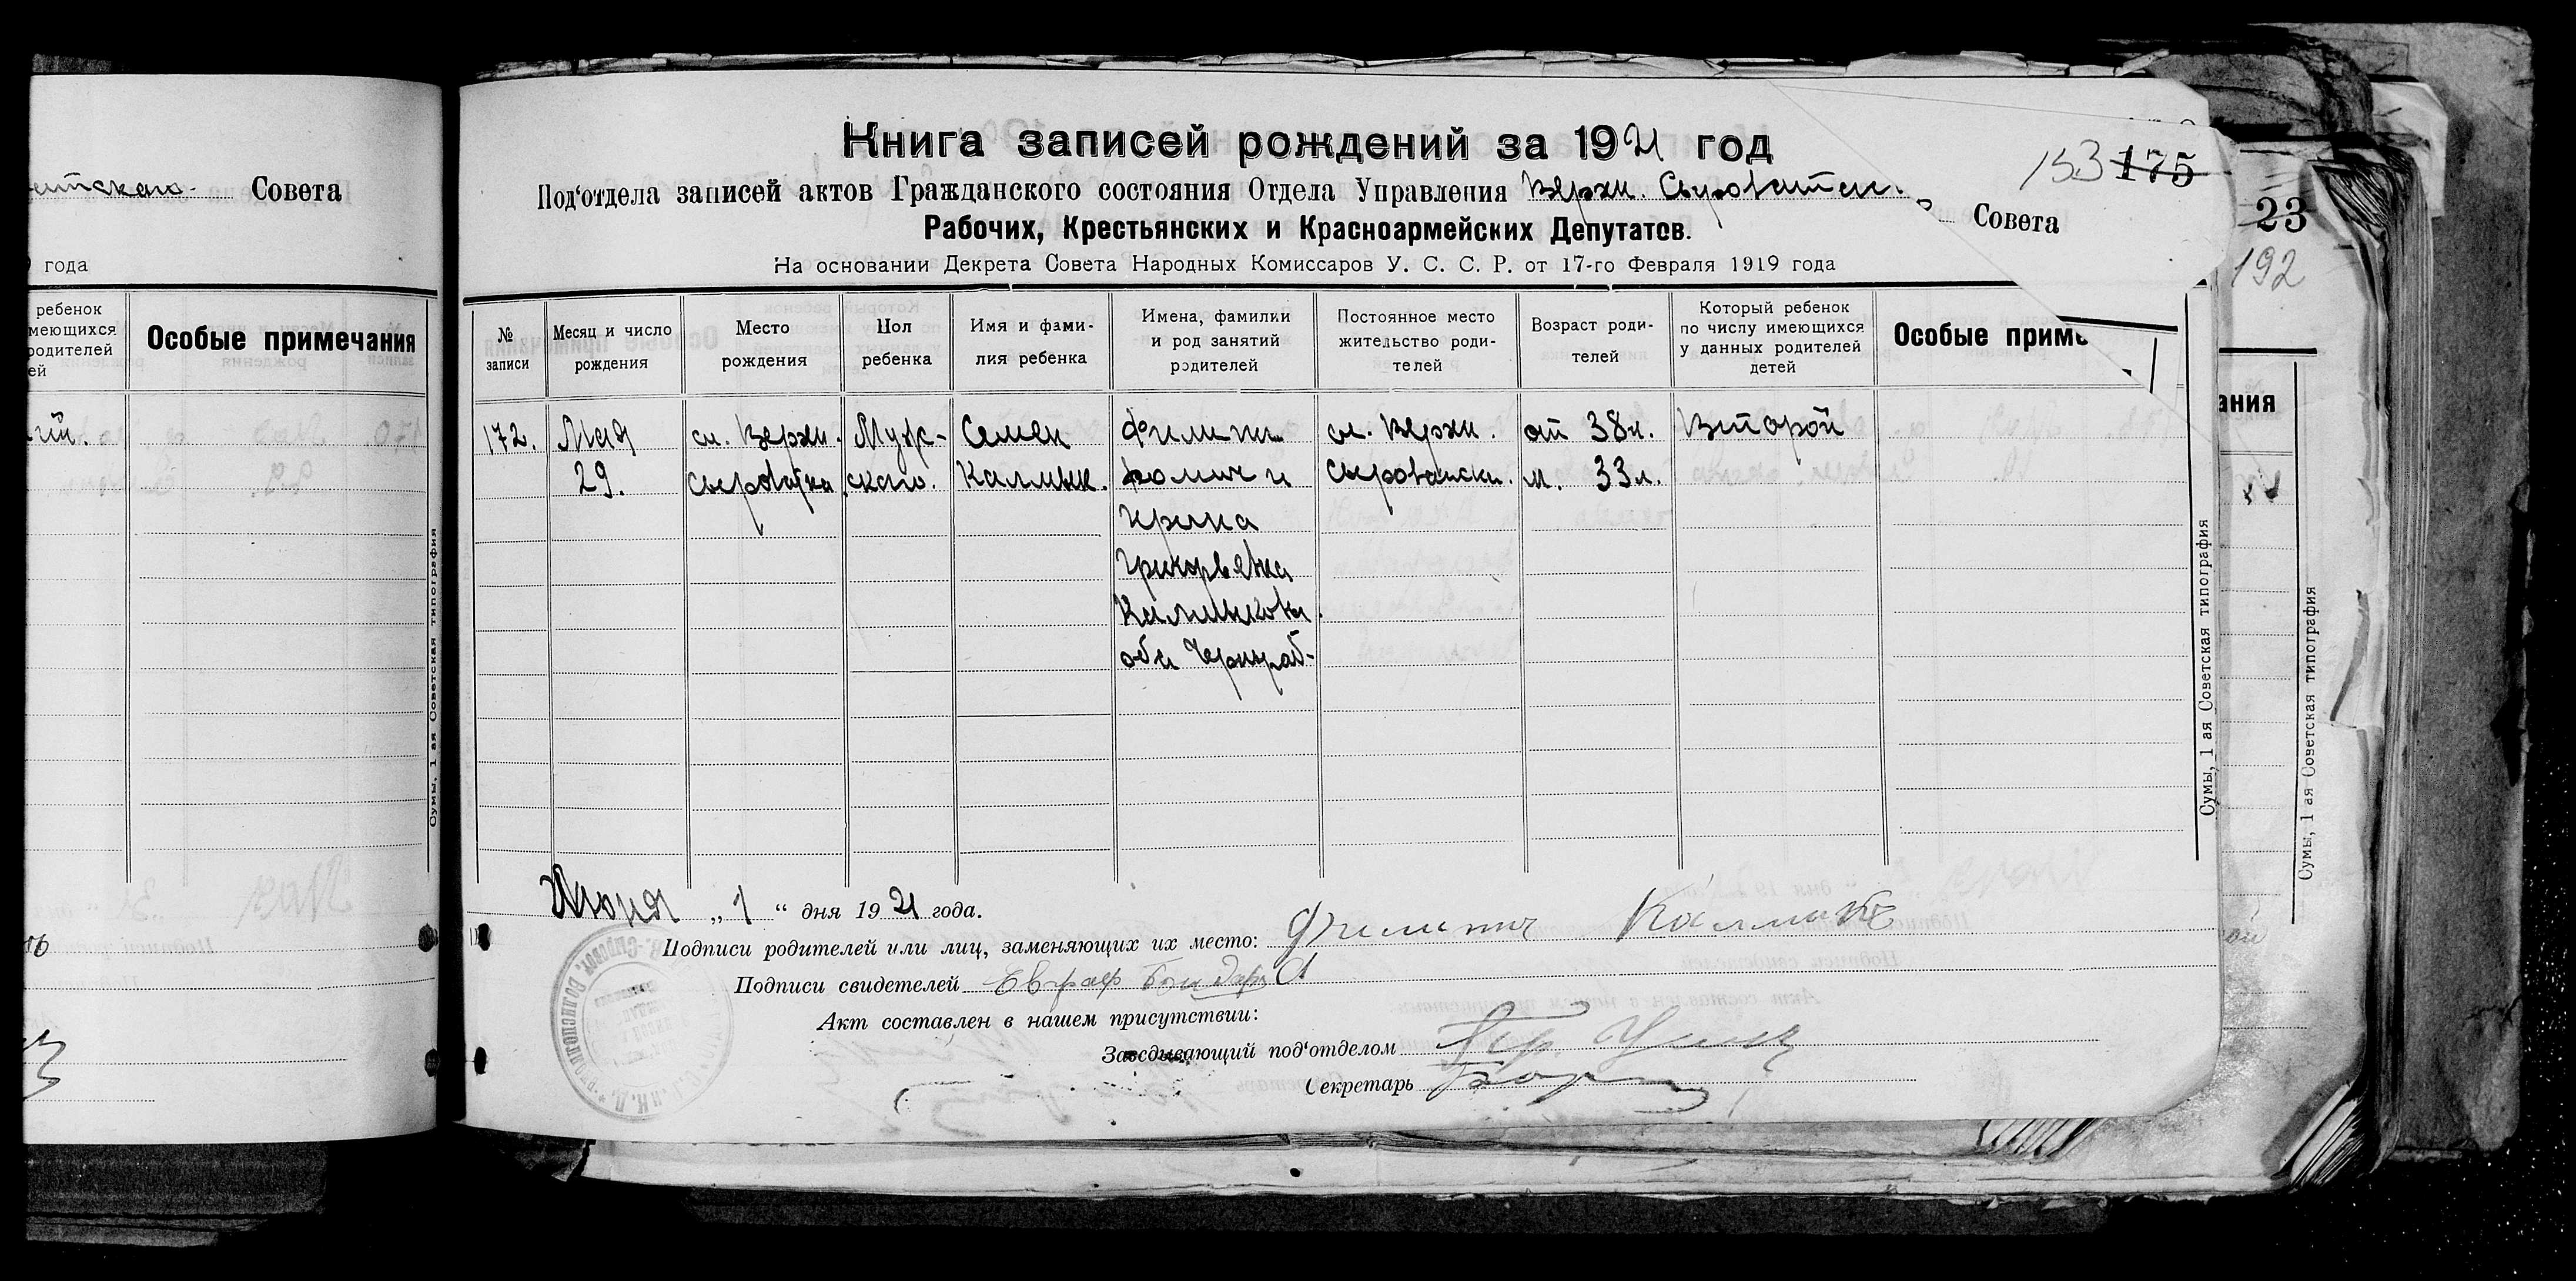 Совета
года
ребенок
родителей
Особые примечания
Сумы, 1 ая Советская типография
153 175
Книга записей рождений за 1921 год
Под'отдела записей актов Гражданского состояния Отдела Управления Верхн. Сыроватск.
Совета
Рабочих, Крестьянских и Красноармейских Депутатов.
На основании Декрета Совета Народных Комиссаров У. С. С. Р. от 17-го Февраля 1919 года
№ записи
Месяц и число рождения
Место рождения
Пол ребенка
Имя и фами-
лия ребенка
Имена, фамилии
и род занятий
родителей
Постоянное место
жительство роди-
телей
Возраст роди-
телей
Который ребенок
по числу имеющихся
у данных родителей
детей
Особые приме
172.
Мая
29.
сл. Верхн.
Сыроватка.
Мужс-
кого.
Семен
Калмык.
Филипп
Фомич и
Ирина
Григорьевна
Калмыкова.
оба Чернораб-
сл. Верхн.
Сыроватки.
от 38л.
м. 33л.
Второй
Сумы, 1 ая Советская типография
Июня „1“ дня 1921 года.
Подписи родителей или лиц, заменяющих их место: Филипп Калмык
Подписи свидетелей Евграф Бондарь
Акт составлен в нашем присутствии:
Заведывающий под'отделом
Секретарь
23
192
ания
Сумы, 1 ая Советская типография